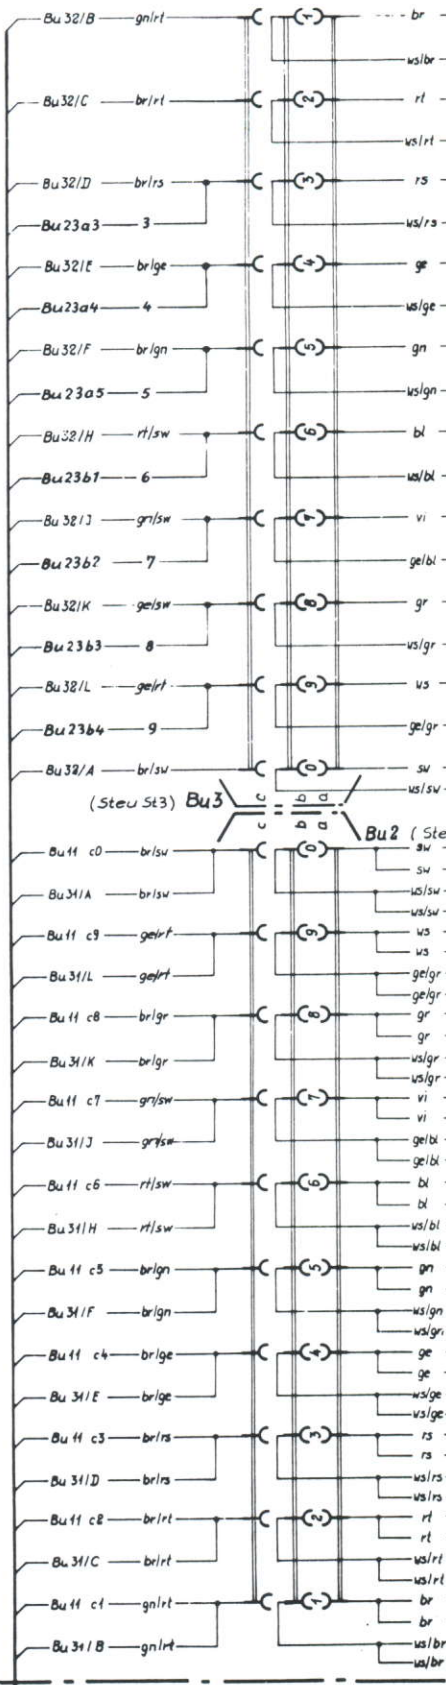 Bu 32/B gn/rt 1 br
ws/br
Bu 32/C br/rt 2 rt
ws/rt
Bu 32/D br/rs 3 rs
Bu 23a3 3 ws/rs
Bu 32/E br/ge 4 ge
Bu 23a4 4 ws/ge
Bu 32/F br/gn 5 gn
Bu 23a5 5 ws/gn
Bu 32/H rt/sw 6 bl
Bu 23b1 6 ws/bl
Bu 32/J gn/sw 7 vi
Bu 23b2 7 ge/bl
Bu 32/K ge/sw 8 gr
Bu 23b3 8 ws/gr
Bu 32/L ge/rt 9 ws
Bu 23b4 9 ge/gr
Bu 32/A br/sw 0 sw
ws/sw
(Steu St3) Bu3 c b a
c b a Bu2 (Ste
Bu 11 c0 br/sw 0 sw
sw
Bu 31/A br/sw ws/sw
ws/sw
Bu 11 c9 ge/rt 9 ws
ws
Bu 31/L ge/rt ge/gr
ge/gr
Bu 11 c8 br/gr 8 gr
gr
Bu 31/K br/gr ws/gr
ws/gr
Bu 11 c7 gn/sw 7 vi
vi
Bu 31/J gn/sw ge/bl
ge/bl
Bu 11 c6 rt/sw 6 bl
bl
Bu 31/H rt/sw ws/bl
ws/bl
Bu 11 c5 br/gn 5 gn
gn
Bu 31/F br/gn ws/gn
ws/gn
Bu 11 c4 br/ge 4 ge
ge
Bu 31/E br/ge ws/ge
ws/ge
Bu 11 c3 br/rs 3 rs
rs
Bu 31/D br/rs ws/rs
ws/rs
Bu 11 c2 br/rt 2 rt
rt
Bu 31/C br/rt ws/rt
ws/rt
Bu 11 c1 gn/rt 1 br
br
Bu 31/B gn/rt ws/br
ws/br